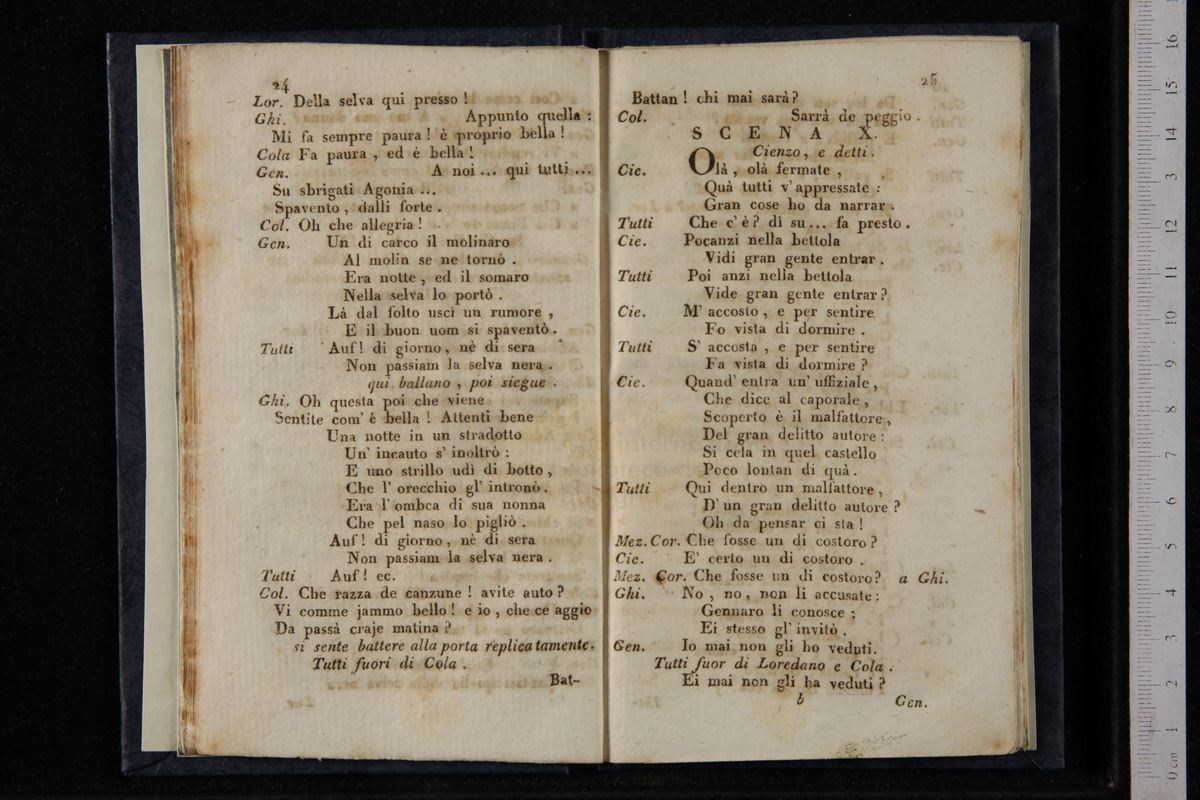 24
Lor. Della selva qui presso !
Ghi. Appunto quella :
Mi fa sempre paura ! è proprio bella !
Cola Fa paura , ed è bella !
Gen. A noi ... qui tutti ...
Su sbrigati Agonia ...
Spavento , dalli forte .
Col. Oh che allegria !
Gen. Un di carco il molinaro
Al molin se ne tornò .
Era notte , ed il somaro
Nella selva lo portò .
Là dal folto uscì un rumore ,
E il buon uom si spaventò .
Tutti Auf ! di giorno , nè di sera
Non passiam la selva nera .
qui ballano , poi siegue .
Ghi. Oh questa poi che viene
Sentite com' è bella ! Attenti bene
Una notte in un stradotto
Un' incauto s' inoltrò :
E uno strillo udì di botto ,
Che l' orecchio gl' intronò .
Era l' ombca di sua nonna
Che pel naso lo pigliò .
Auf ! di giorno , nè di sera
Non passiam la selva nera .
Tutti Auf ! ec.
Col. Che razza de canzune ! avite auto ?
Vi comme jammo bello ! e io , che ce aggio
Da passà craje matina ?
si sente battere alla porta replicatamente.
Tutti fuori di Cola .
Bat-
25
Battan ! chi mai sarà ?
Col. Sarrà de peggio .
SCENA X.
Cienzo , e detti .
Cie. Olà , olà fermate ,
Quà tutti v' appressate :
Gran cose ho da narrar .
Tutti Che c' è ? dì su ... fa presto .
Cie. Pocanzi nella bettola
Vidi gran gente entrar .
Tutti Poi anzi nella bettola
Vide gran gente entrar ?
Cie. M' accosto , e per sentire
Fo vista di dormire .
Tutti S' accosta , e per sentire
Fa vista di dormire ?
Cie. Quand' entra un' uffiziale ,
Che dice al caporale ,
Scoperto è il malfattore ,
Del gran delitto autore :
Si cela in quel castello
Poco lontan di quà .
Tutti Qui dentro un malfattore ,
D' un gran delitto autore ?
Oh da pensar ci sta !
Mez. Cor. Che fosse un di costoro ?
Cie. E' certo un di costoro .
Mez. Cor. Che fosse un di costoro ? a Ghi.
Ghi. No , no , non li accusate :
Gennaro li conosce :
Ei stesso gl' invitò .
Gen. Io mai non gli ho veduti.
Tutti fuor di Loredano e Cola .
Ei mai non gli ha veduti ?
b
Gen.
0 cm 1 2 3 4 5 6 7 8 9 10 11 12 13 14 15 16